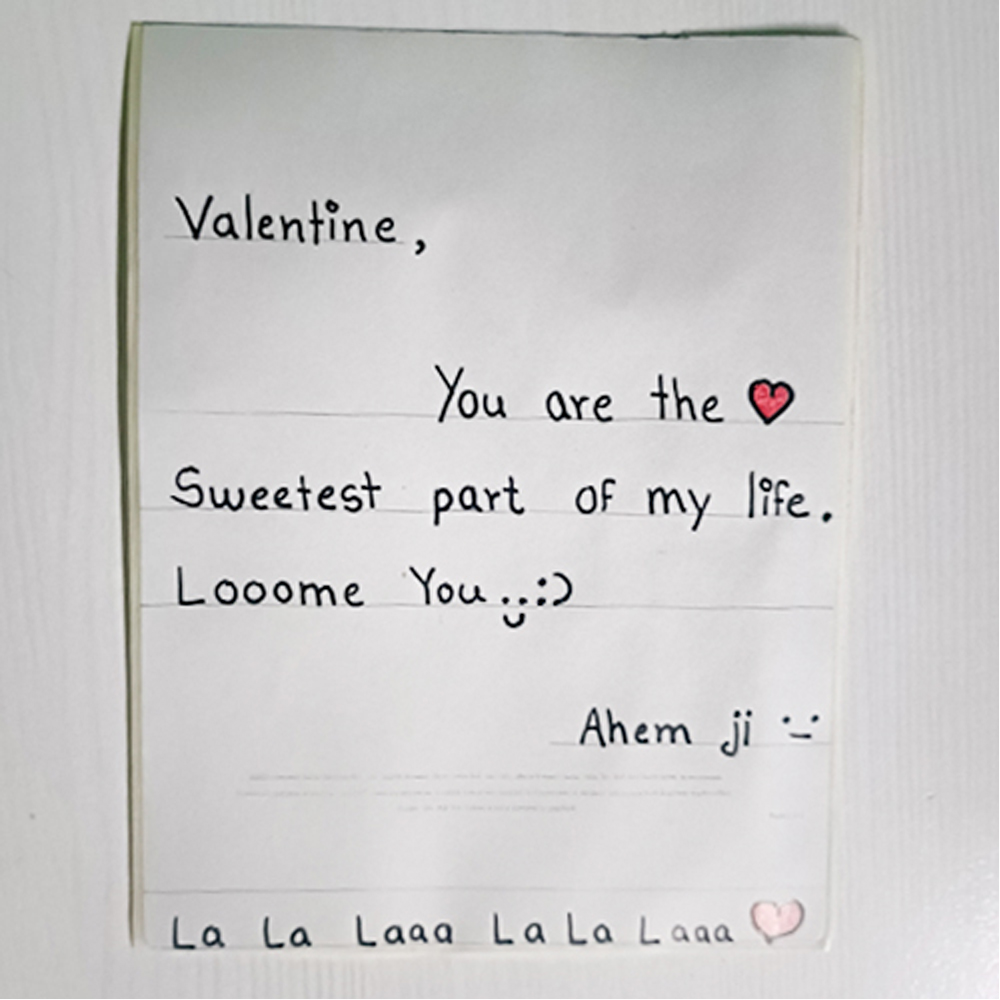 Valentine,
You are the ❤
Sweetest part of my life.
Looome You..:)
Ahem ji
La La Laaa La La Laaa